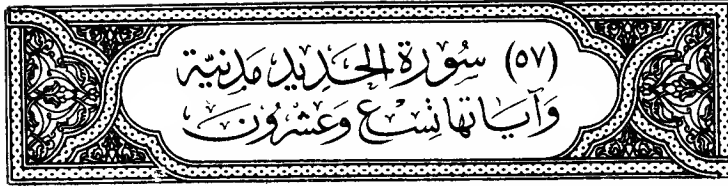 (٥٧) سُورَة الحَدِيد مَدنيّة
وَآيَاتها تِسْع وَعشرُون